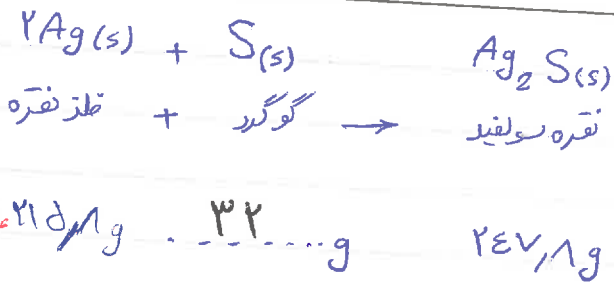 ۲Ag(s) + S(s) Ag₂S(s)
فلز نقره + گوگرد → نقره سولفید
۲۱۵٫۸g ۳۲ g ۲۴۷٫۸g